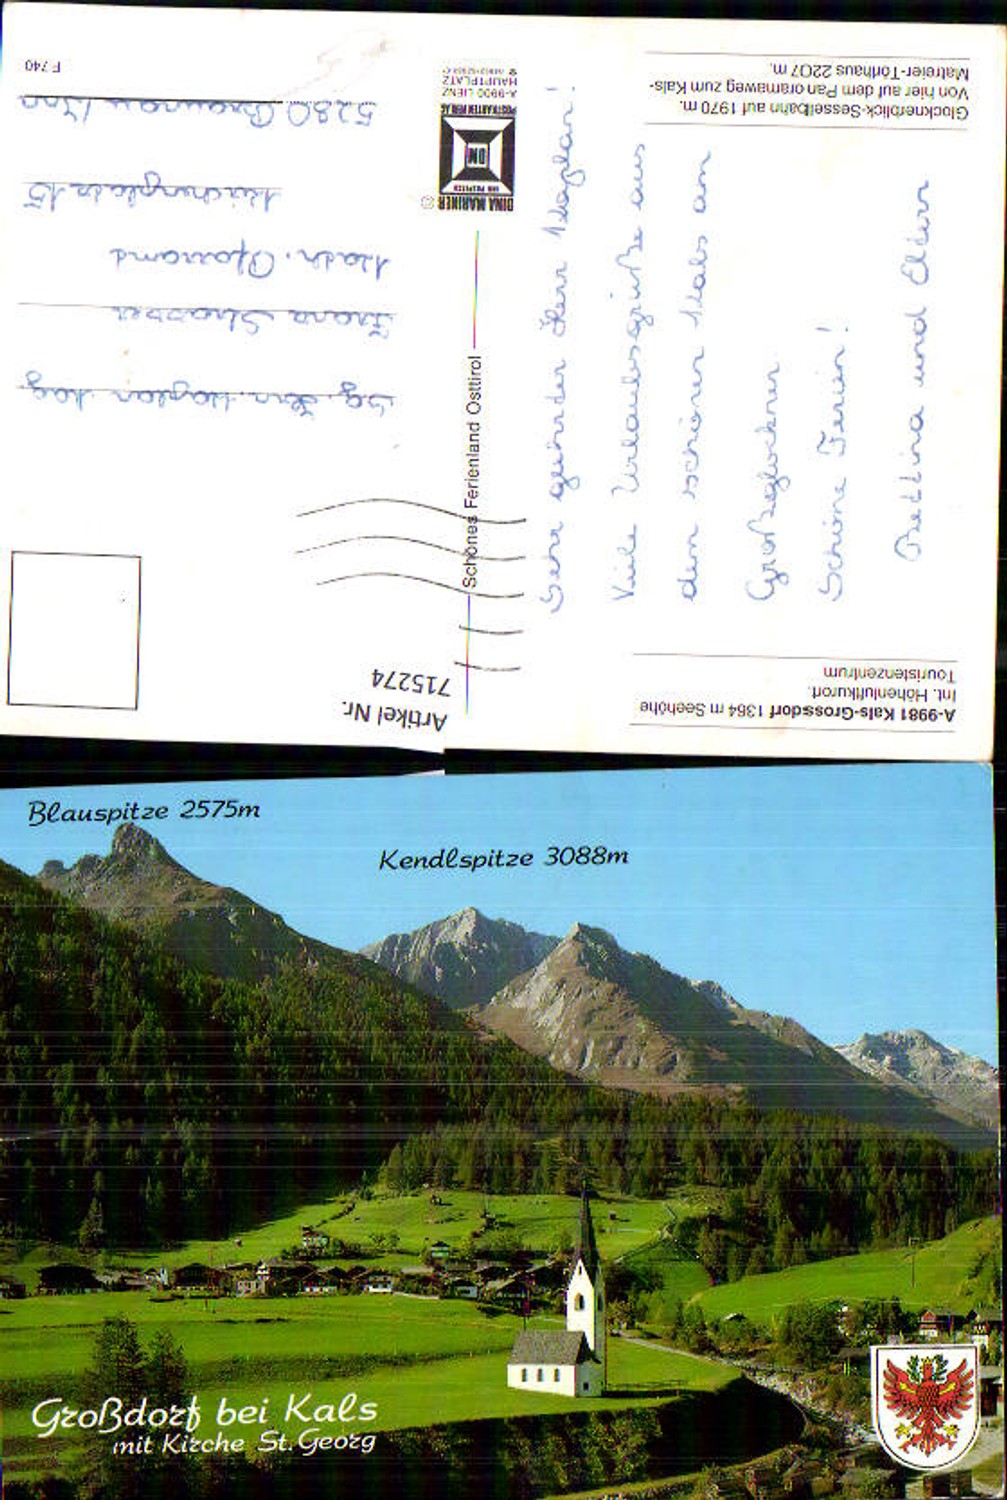 A-9981 Kals-Grossdorf 1364 m Seehöhe
Int. Höhenluftkurort.
Touristenzentrum
Glocknerblick-Sesselbahn auf 1970 m.
Von hier auf dem Panoramaweg zum Kals-
Matreier-Törlhaus 2207 m.
Sehr geehrter Herr Kaplan!
Viele Urlaubsgrüße aus
dem schönen Kals am
Großglockner
Schöne Ferien!
Bettina und Eltern
Schönes Ferienland Osttirol
DINA MARINER
DM
POSTKARTENVERLAG
A-9900 LIENZ
HAUPTPLATZ
Artikel Nr.
715274
Sg. Herrn Kaplan Mag
Franz Strasser
Kath. Pfarramt
Kirchenplatz 15
5280 Braunau/Inn
F 740
Blauspitze 2575m
Kendlspitze 3088m
Großdorf bei Kals
mit Kirche St. Georg